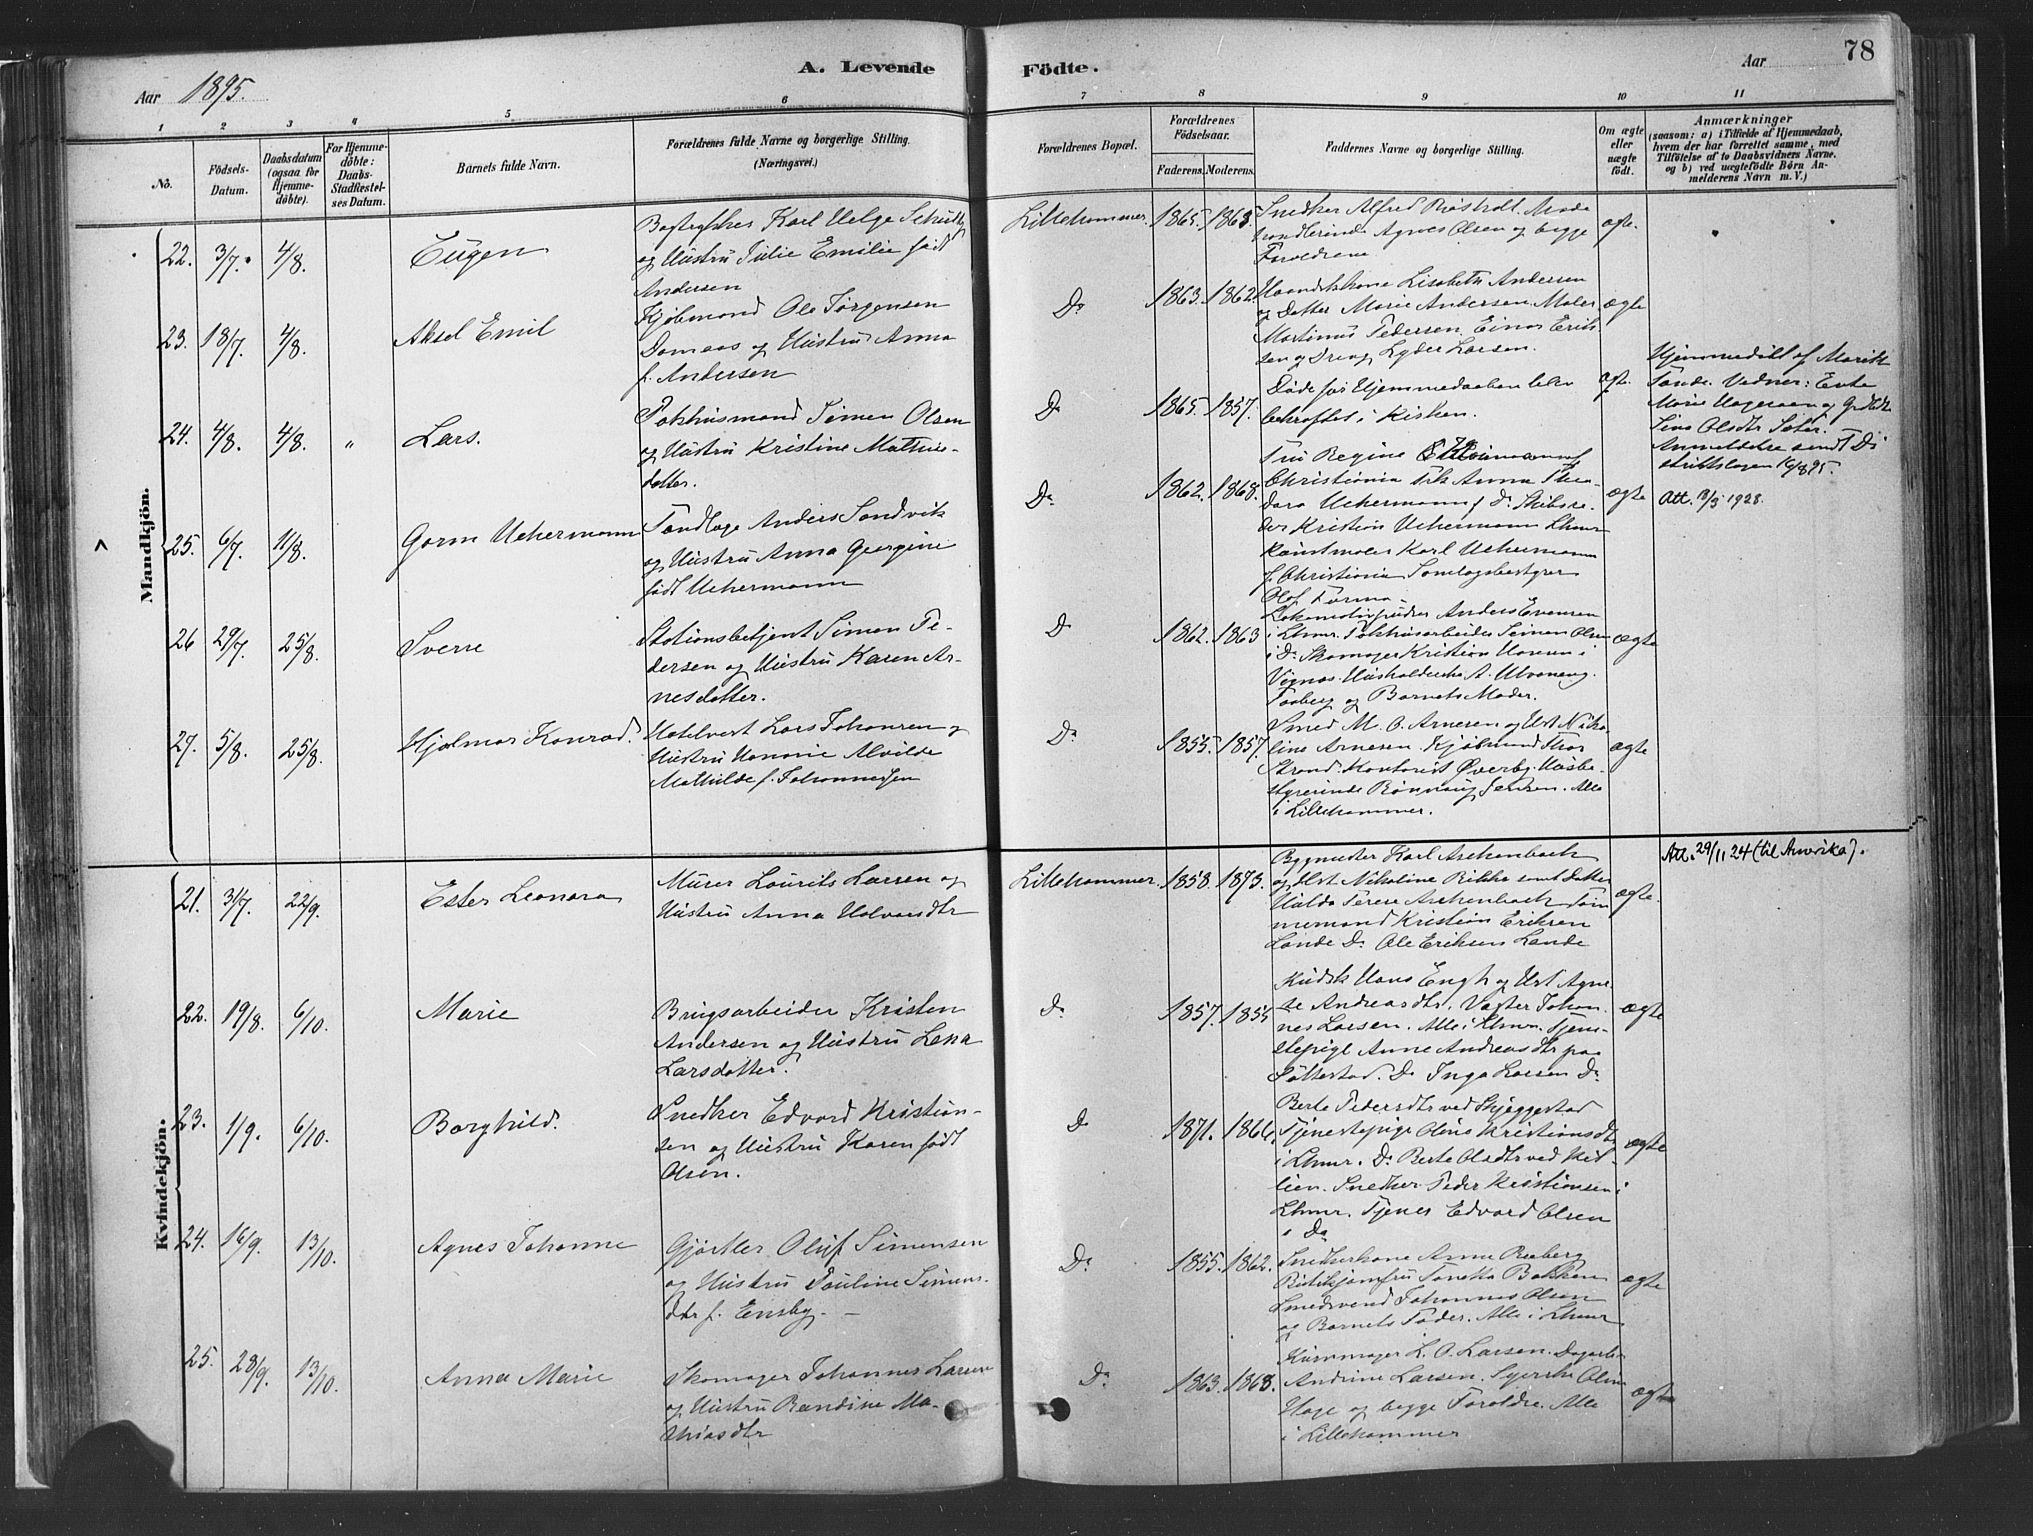 78
A. Levende Födte.
Aar 1895.
Aar
1 2 3 4 5 6 7 8 9 10 11
No.
Födsels-
Datum.
Daabsdatum
(ogsaa for
Hjemme-
döbte).
For Hjemme-
döbte:
Daabs-
Stadfæstel-
ses Datum.
Barnets fulde Navn.
Forældrenes fulde Navne og borgerlige Stilling.
(Næringsvei.)
Forældrenes Bopæl.
Forældrenes
Födselsaar.
Faderens. Moderens.
Faddernes Navne og borgerlige Stilling.
Om ægte
eller
uægte
födt.
Anmærkninger
(saasom: a) i Tilfælde af Hjemmedaab,
hvem der har forrettet samme, med
Tilföielse af to Daabsvidners Navne,
og b) ved uægtefödte Börn An-
melderens Navn m. V.)
Mandkjön.
22. 3/7. 4/8. Eugen
og Hustru Julie Emilie født
Andersen
Lillehammer. 1865. 1863.
Snedker Alfred
handlerinde Agnes Olsen og begge
Forældrene
ægte.
23. 18/7. 4/8. Aksel Emil
Kjøbmand Ole Jørgensen
Domaas og Hustru Anna
f. Andersen
Do 1863. 1862.
Lisabeth Andersen
og Datter Marie Andersen. Maler
Martinus Pedersen. Einar Erik-
sen og Dreng Lyder Larsen.
ægte
24. 4/8. 4/8. " Lars.
Pakhusmand Simen Olsen
og Hustru Kristine Mathis-
datter.
Do 1865. 1857.
Døde før Hjemmedaaben blev
bekræftet i Kirken.
ægte.
Hjemmedøbt af
Marie Hagesæen og
Line Olsdtr Sæter.
Anmeldelse sendt Di-
striktslægen 16/8 95.
25. 6/7. 11/8. Gorm Uchermann
Tandlæge Anders Sandvik
og Hustru Anna Georgine
født Uchermann
Do 1862. 1868.
Fru Regine
Christiania Frk Anna Theo-
dora Uchermann f. Do. Skibsre-
der Kristian Uchermann Lhmr
Kunstmaler Karl Uchermann
f. Christiania Samlagsbestyrer
Olaf Forma.
ægte
Att. 13/3 1928.
26 29/7. 25/8. Sverre
Stationsbetjent Simen Pe-
dersen og Hustru Karen Ar-
nesdatter.
Do 1862. 1863
Lokomotivpudser Anders Evensen
i Lhmr. Pakhusarbeider Simen Olsen
i Do Skomager Kristian
Faaberg og Barnets Moder.
ægte
27. 5/8. 25/8. Hjalmar Konrad.
Hotelvert Lars Johansen og
Hustru Hanna Alvilde
Mathilde f. Johannessen
Do 1855. 1857.
Smed M. O. Arnesen og Ust Niko-
line Arnesen. Kjøbmand Thor
Strand. Kontorist Øverby. Husbe-
styrerinde Rønnaug Jensen. Alle
i Lillehammer.
ægte
Kvindekjön.
21. 31/7. 22/9. Ester Leonora
Murer Laurits Larsen og
Hustru Anna Halvorsdtr
Lillehammer. 1858. 1873.
Bygmester Karl Aschenbach
og Ust. Nikoline Rikke samt Datter
Hulda Terese Aschenbach Tøm-
mermand Kristian Eriksen
Lande Do Ole Eriksen Lande
ægte.
Att. 29/11 24 (til Amerika).
22. 19/8. 6/10. Marie
Brugsarbeider Kristen
Andersen og Hustru Lena
Larsdatter.
Do 1857. 1855
Kudsk Hans Engh og Ust Agne-
te Andreasdtr. Vagter Johan-
nes Larsen. Alle i Lhmr. Tjene-
stepige Anne Andreasdtr paa
Jølstad. Do Inga Larsen Do
ægte
23. 1/9. 6/10. Borghild.
Snedker Edvard Kristian-
sen og Hustru Karen født
Olsen.
Do 1871. 1864.
Berte Pedersdtr ved Skjeggestad
Tjenestepige Oline Kristiansdtr
i Lhmr. Do Berte Olsdtr ved Kil-
lien. Snedker Peder Kristiansen i
Lhmr. Tjener Edvard Olsen
i Do
ægte
24. 16/9. 13/10. Agnes Johanne
Gjørtler Oluf Simensen
og Hustru Pauline Simens-
dtr f. Ensby. —
Do 1855. 1862.
Snedkerkone Anne Reberg
Butikjomfru Tonetta Bakken
Smedsvend Johannes Olsen
og Barnets Fader. Alle i Lhmr
ægte
25. 28/9. 13/10. Anna Marie
Skomager Johannes Larsen
og Hustru Randine Ma-
thiasdtr
Do. 1863. 1868.
Kurvmager L. O. Larsen.
Andrine Larsen. Syerske Oline
Hage og begge Forældre. Alle
i Lillehammer
ægte